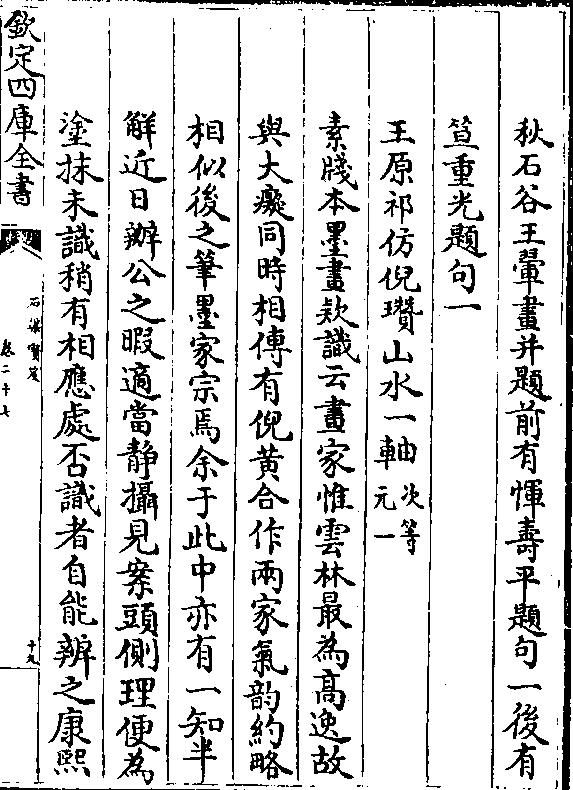 秋石谷王翬畫并題前有惲壽平題句一後有
笪重光題句一
王原祁仿倪瓚山水一軸次等元一
素牋本墨畫欵識云畫家惟雲林最為高逸故
與大癡同時相傳有倪黃合作兩家氣韵約略
相似後之筆墨家宗焉余于此中亦有一知半
解近日辦公之暇適當靜攝見案頭側理便為
塗抹未識稍有相應處否識者自能辨之康熙
欽定四庫全書
石渠寶笈
卷二十七
十九